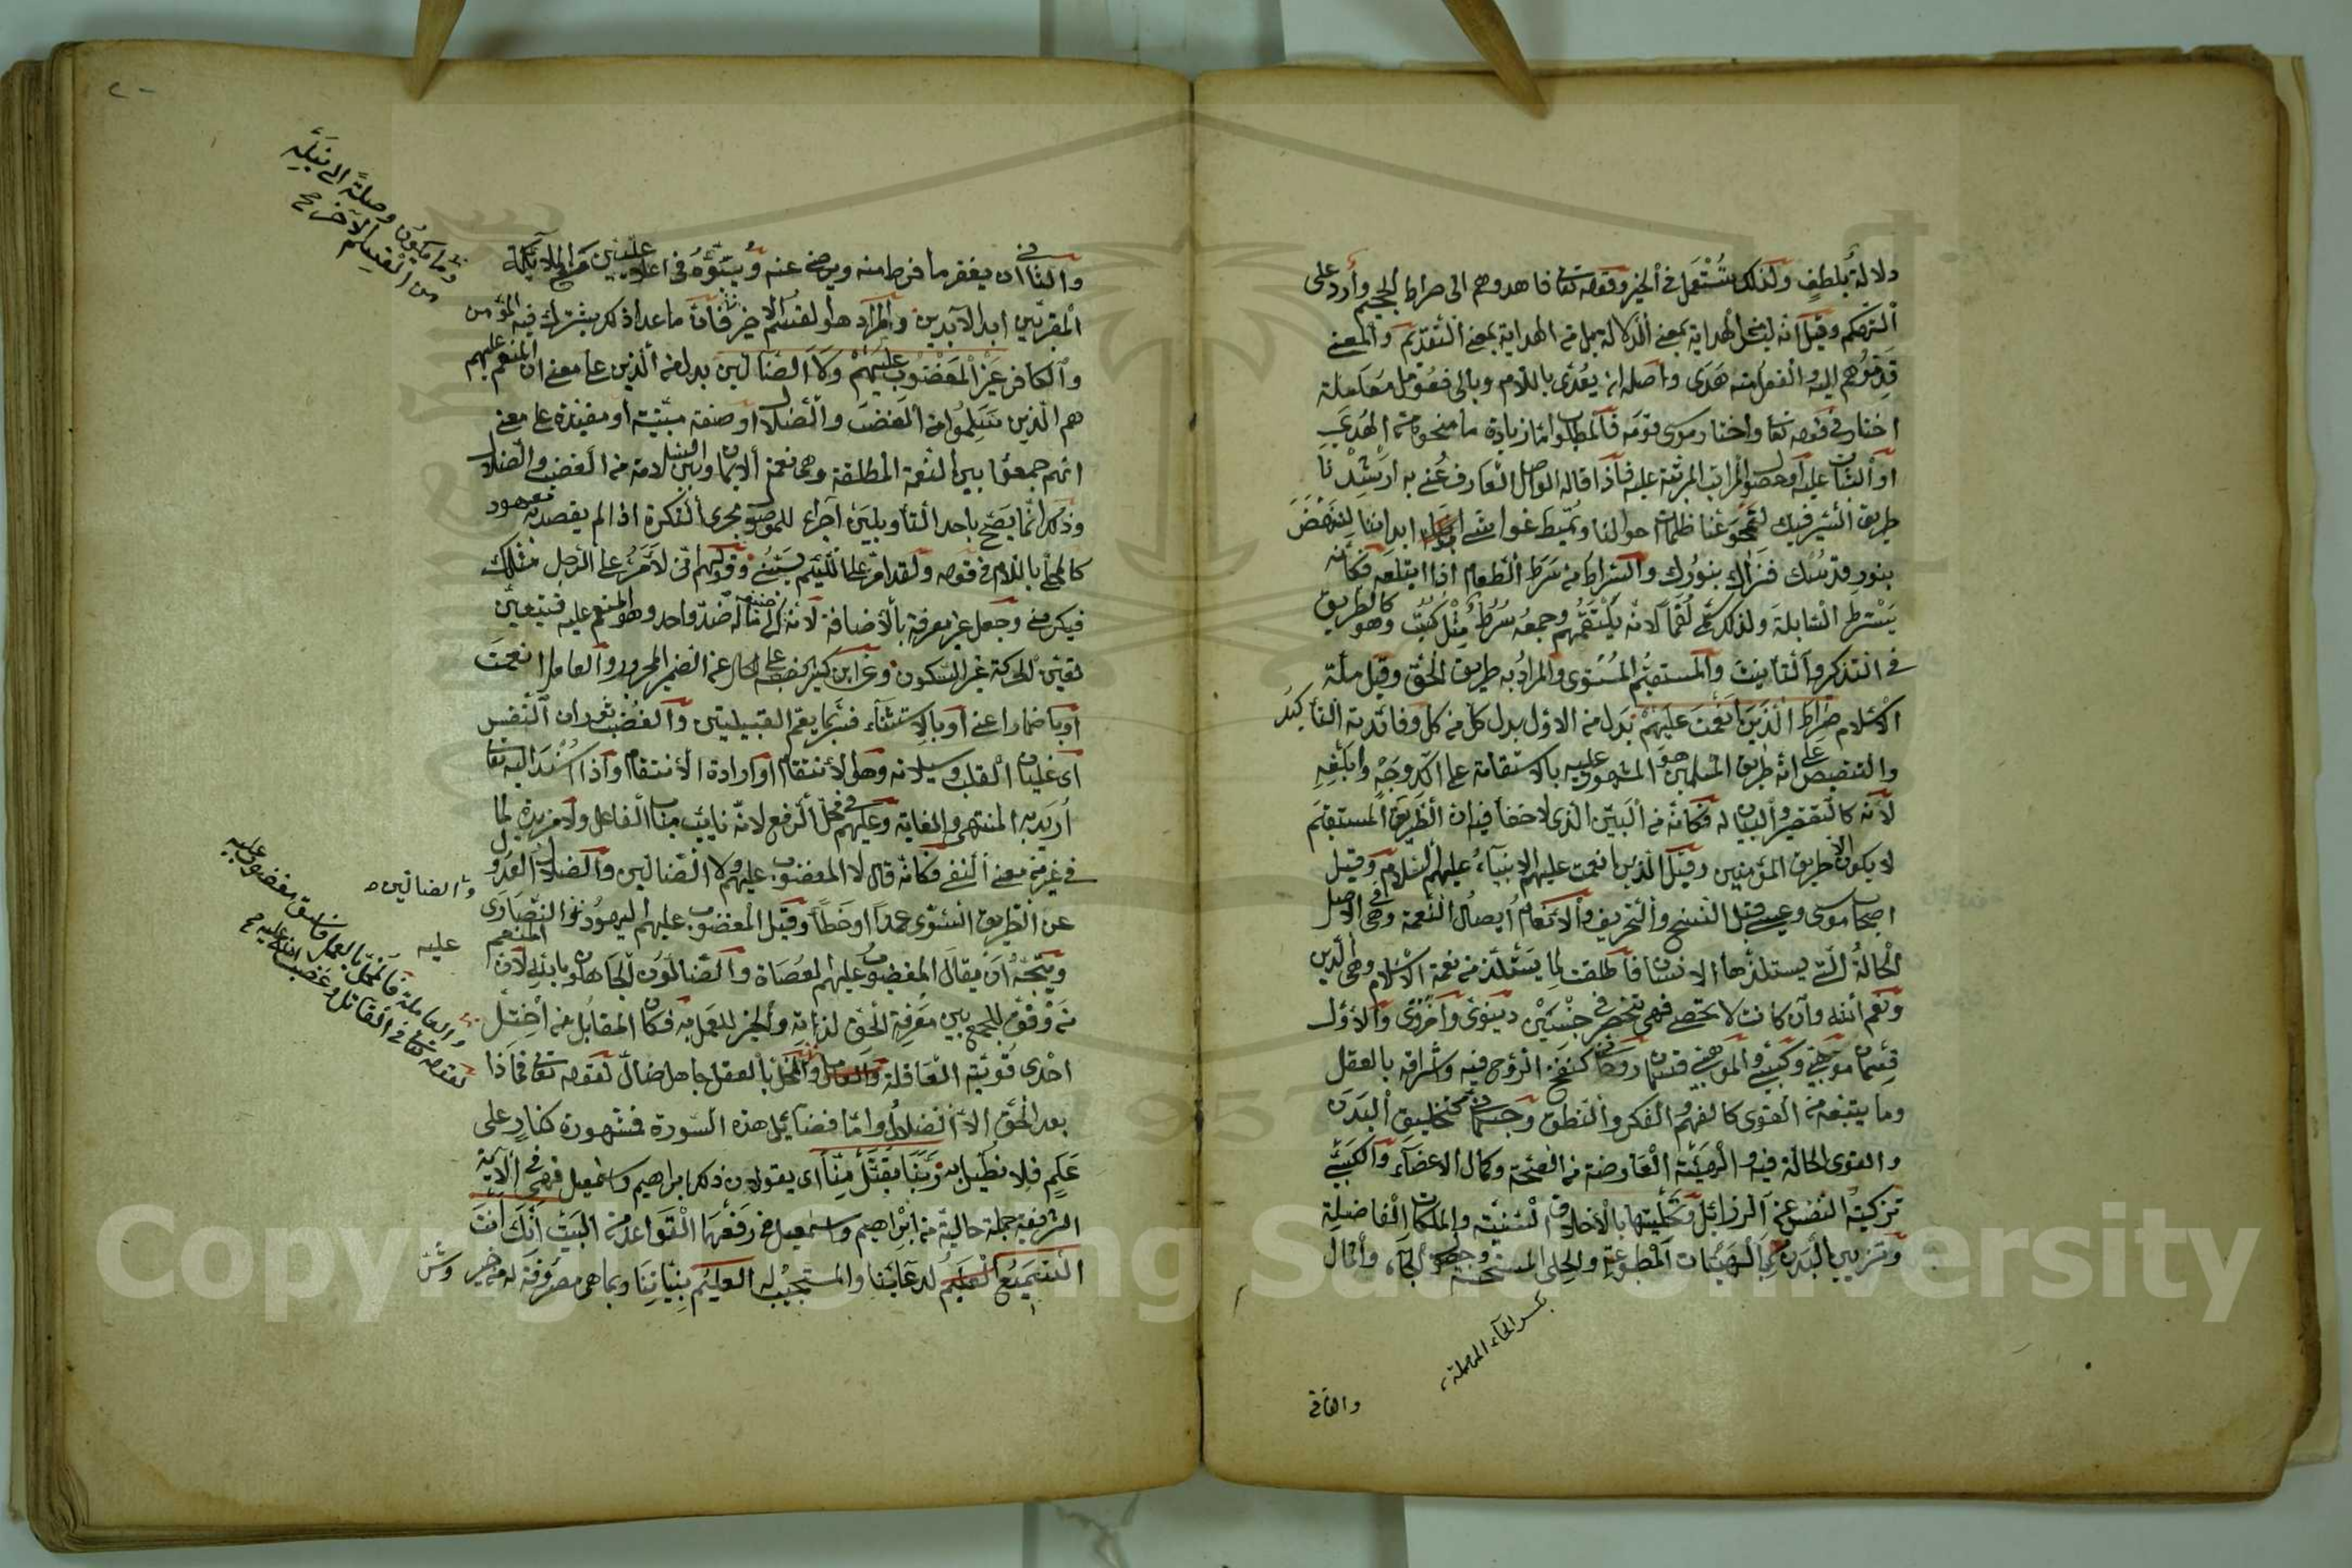 دلالة بلطف ولذلك تستعمل في الخير وقوله تعالى فاهدوهم الى صراط الجحيم وارد على
التهكم وقيل انه ليس الهداية بمعنى الدلالة بل من الهداية بمعنى التقدم والمعنى
قدموهم اليه والفعل منه هدى واصله ان يعدى باللام وبالى فعومل معاملة
اختار في قوله تعالى واختار موسى قومه فالمطلوب اما زيادة ما منحوه من الهدى
او الثبات عليه او حصول المراتب المرتبة عليه فاذا قاله الواصل العارف عنى به ارشدنا
طريق السير فيك لتمحو عنا ظلمات احوالنا وتميط غواشى ابداننا لنستضئ
بنور قدسك فنراك بنورك والسراط من سرط الطعام اذا ابتلعه فكانه
يسترط السابلة ولذلك سمى لقما لانه يلتقمهم وجمعه سرط مثل كتب وهو كالطريق
في التذكير والتأنيث والمستقيم المستوى والمراد به طريق الحق وقيل ملة
الاسلام صراط الذين انعمت عليهم بدل من الاول بدل كل من كل وفائدته التأكيد
والتنصيص على انه طريق المسلمين هو المشهود عليه بالاستقامة على آكد وجه وابلغه
لانه كالتفسير والبيان له فكأنه من البين الذى لا خفأ فيه ان الطريق المستقيم
لا يكون الا طريق المؤمنين وقيل الذين انعمت عليهم الانبياء عليهم السلام وقيل
اصحاب موسى وعيسى قبل النسخ والتحريف والانعام ايصال النعمة وهى في الاصل
الحالة التى يستلذها الانسان فاطلقت لما يستلذ من نعمة الاسلام وهى الدين
ونعم الله وان كانت لا تحصى فهى تنحصر في جنسين دنيوى واخروى والاول
قسمان موهبى وكسبى والموهبى قسمان روحانى كنفخ الروح فيه واشراقه بالعقل
وما يتبعه من القوى كالفهم والفكر والنطق وجسمانى كتخليق البدن
والقوى الحالة فيه والهيئة العارضة من الصحة وكمال الاعضآء والكسبى
تزكية النفس عن الرزائل وتحليتها بالاخلاق السنية والملكات الفاضلة
وتزيين البدن بالهيئات المطبوعة والحلى المستحسنة وحصول الجاه والمال
بكسر الحآء المهملة
والثانى
والثانى ان يغفر ما فرط منه ويرضى عنه ويبوئه في اعلى عليين مع الملائكة
المقربين ابد الآبدين والمراد هو القسم الاخير فان ما عدا ذلك يشترك فيه المؤمن
وما يكون وصلة الى نيله
من القسم الآخر صح
والكافر غير المغضوب عليهم ولا الضالين بدل من الذين على معنى ان المنعم عليهم
هم الذين سلموا من الغضب والضلال او صفة مبينة او مقيدة على معنى
انهم جمعوا بين النعمة المطلقة وهى نعمة الايمان وبين السلامة من الغضب والضلال
وذلك انما يصح باحد التأويلين اجراء للموصول مجرى النكرة اذا لم يقصد به معهود
كالمحلى باللام في قوله ولقد امر على اللئيم يسبنى وقولهم انى لأمر على الرجل مثلك
فيكرمنى وجعل غير معرفة بالاضافة لانه اضيف الى ما له ضد واحد وهو المنعم عليه فيتعين
تعين الحركة غير السكون وعن ابن كثير نصبه على الحال عن الضمير المجرور والعامل انعمت
او باضمار اعنى او بالاستثناء فسر بما يعم القبيلتين والغضب ثوران النفس
اى غليان القلب وسيلانه وهو الانتقام او ارادة الانتقام واذا اسند اليه تعالى
اريد به المنتهى والغاية وعليهم في محل الرفع لانه نائب مناب الفاعل ولا مزيدة لما
في غير من معنى النفى فكانه قال لا المغضوب عليهم ولا الضالين والضلال العدول
عن الطريق السوى عمدا او خطأ وقيل المغضوب عليهم اليهود والنصارى
والضالين ص
ويتجه ان يقال المغضوب عليهم العصاة والضالون الجاهلون بالله لان المنعم
عليه
من وفق للجمع بين معرفة الحق لذاته والخير للعمل به فكان المقابل من اختل
احدى قوتيه العاقلة والمخل بالعقل جاهل ضال لقوله تعالى فماذا
والعاملة فالمخل بالعمل فاسق مغضوب عليه
لقوله تعالى في القاتل وغضب الله عليه صح
بعد الحق الا الضلال واما فضائل هذه السورة فمشهورة كنار على
علم فلا نطيل به ربنا تقبل منا اى يقولان ذلك ابراهيم واسمعيل فهى في الآية
الشريفة جملة حالية من ابراهيم واسمعيل في رفعهما القواعد من البيت انك انت
السميع العليم لدعائنا والمستجيب له العليم بنياتنا وبما هى مصروفة له من خير وشر